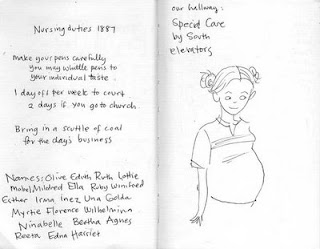 Nursing duties 1887
make your pens carefully
you may whittle pens to
your individual taste.
1 day off per week to court
2 days if you go to church.
Bring in a scuttle of coal
for the day's business
Names: Olive Edith Ruth Lottie
Mabel Mildred Ella Ruby Winifred
Esther Irma Inez Una Golda
Myrtie Florence Wilhelmina
Ninabelle Bertha Agnes
Reeta Edna Harriet
our hallway:
Special Care
by South
elevators